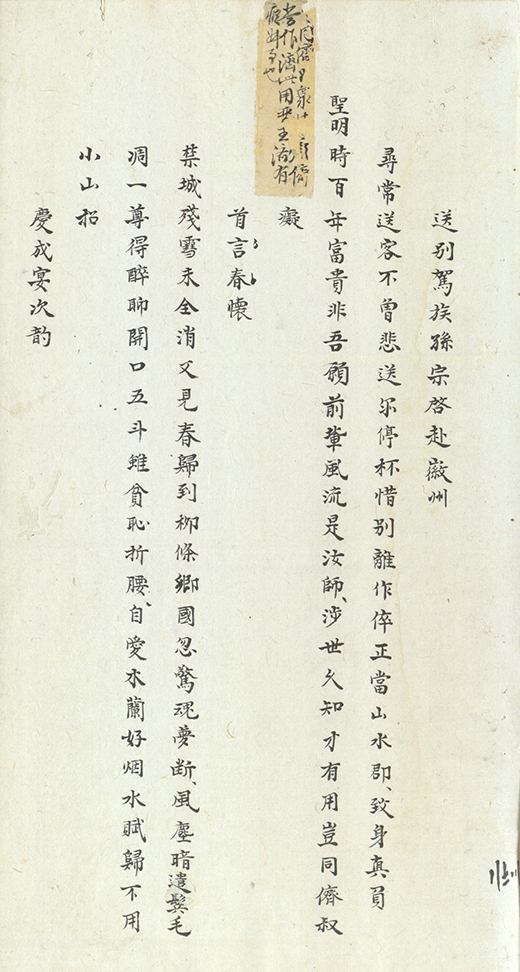 送別駕族孫宗啓赴徽州
尋常送客不曾悲送尔停杯惜別離作倅正當山水郡、致身真員
聖明時百年富貴非吾願前輩風流是汝師、涉世久知才有用豈同儕叔
癡
首言春懷
禁城殘雪未全消又見春歸到柳條鄉國忽驚魂夢断、風塵暗遣鬂毛
凋一尊得醉聊開口五斗雖貧恥折腰、自愛木蘭好烟水賦歸不用
小山招
慶成宴次韵